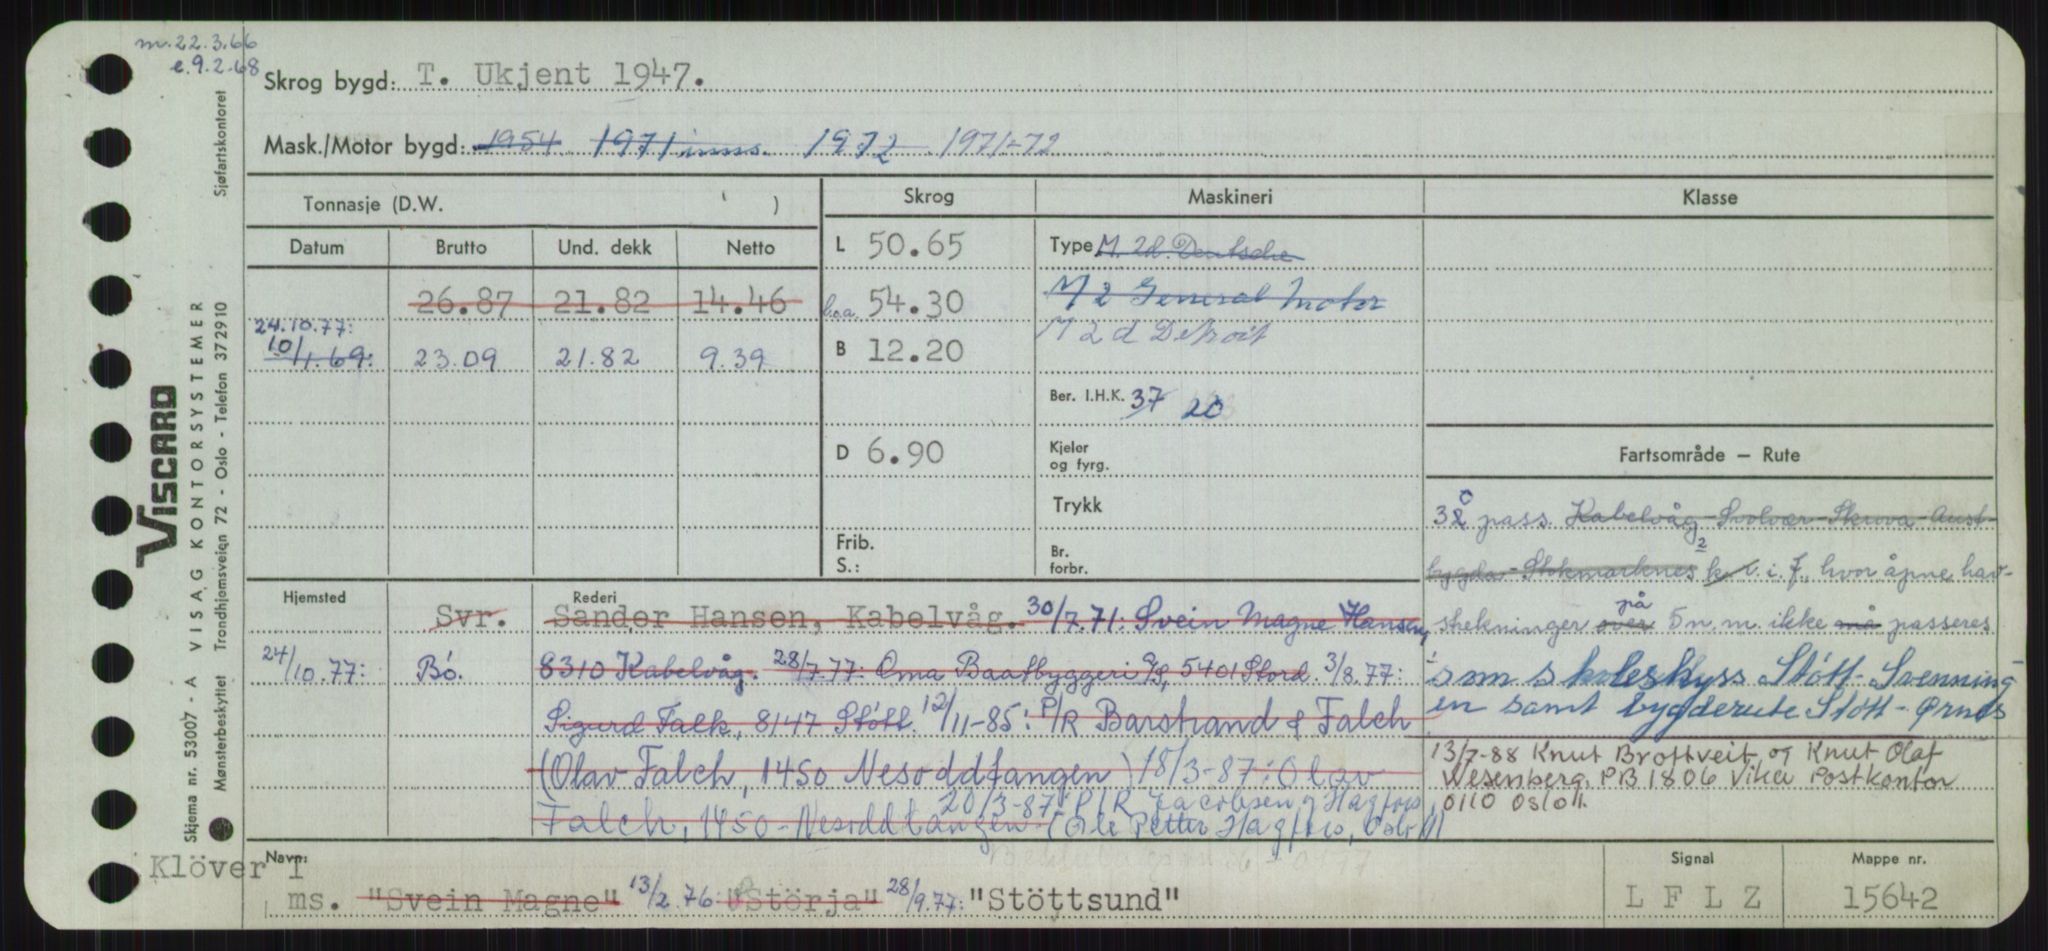 m. 22.3.66
e. 9.2.68
Skrog bygd: T. Ukjent 1947.
Mask./Motor bygd: 1954 1971 inns. 1972 1971-72
Tonnasje (D.W. )
Datum Brutto Und. dekk Netto
26.87 21.82 14.46
24.10.77:
10/1.69: 23.09 21.82 9.39
Skrog
L 50.65
l.o.a. 54.30
B 12.20
D 6.90
Frib.
S.:
Maskineri
Type M. 2d. Deutsche
M 2 General Motor
M 2 d Detroit
Ber. I.H.K. 37 20
Kjeler
og fyrg.
Trykk
Br.
forbr.
Klasse
Fartsområde – Rute
30 pass. Kabelvåg-Svolvær-Skrova-Aust-
bygda-Stokmarknes k 2 i f. hvor åpne hav-
strekninger over på 5 n.m. ikke må passeres
som skoleskyss Støtt-Svenning-
en samt bygderute Støtt-Ørnes
13/7-88 Knut Brottveit og Knut Olaf
Wesenberg, PB 1806 Vika Postkontor
0110 Oslo 1.
Hjemsted Rederi
Svr. Sander Hansen, Kabelvåg. 30/7.71: Svein Magne Hansen,
24/10.77: Bö. 8310 Kabelvåg. 28/7.77: Oma Baatbyggeri A/S, 5401 Stord. 3/8.77:
Sigurd Falk, 8147 Støtt. 12/11-85: P/R Barstrand & Falch
(Olav Falch, 1450 Nesoddtangen) 18/3-87: Olav
20/3-87: P/R Jacobsen & Hagfors
Falch, 1450-Nesoddtangen (Ole Petter Hagfors, Oslo 11)
Klöver I
Navn:
ms. "Svein Magne" 13/2.76: "Störja" 28/9.77: "Stöttsund"
Signal
L F L Z
Mappe nr.
15642
Viscard
VISAG KONTORSYSTEMER
Skjema nr. 53007 - A
Mønsterbeskyttet Trondhjemsveien 72 - Oslo - Telefon 372910
Sjøfartskontoret